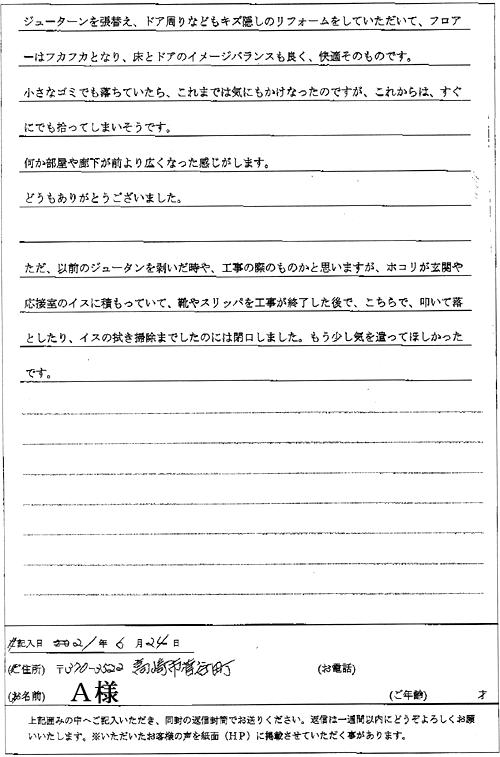 ジューターンを張替え、ドア周りなどもキズ隠しのリフォームをしていただいて、フロア
ーはフカフカとなり、床とドアのイメージバランスも良く、快適そのものです。
小さなゴミでも落ちていたら、これまでは気にもかけなったのですが、これからは、すぐ
にでも拾ってしまいそうです。
何か部屋や廊下が前より広くなった感じがします。
どうもありがとうございました。
ただ、以前のジュータンを剥いだ時や、工事の際のものかと思いますが、ホコリが玄関や
応接室のイスに積もっていて、靴やスリッパを工事が終了した後で、こちらで、叩いて落
としたり、イスの拭き掃除までしたのには閉口しました。もう少し気を遣ってほしかった
です。
記入日 2021年 6月 24日
住所) 〒370-3522 高崎市菅谷町 (お電話)
(お名前) A様 (ご年齢) 才
上記囲みの中へご記入いただき、同封の返信封筒でお送りください。返信は一週間以内にどうぞよろしくお願
いいたします。※いただいたお客様の声を紙面（HP）に掲載させていただく事があります。